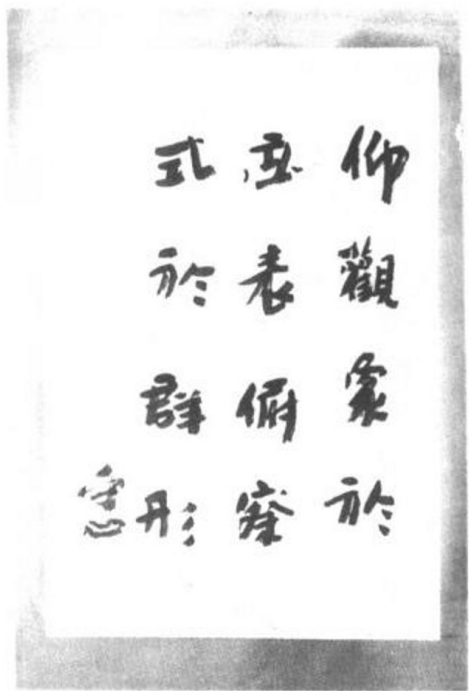 仰觀象於
表俯察
式於群形